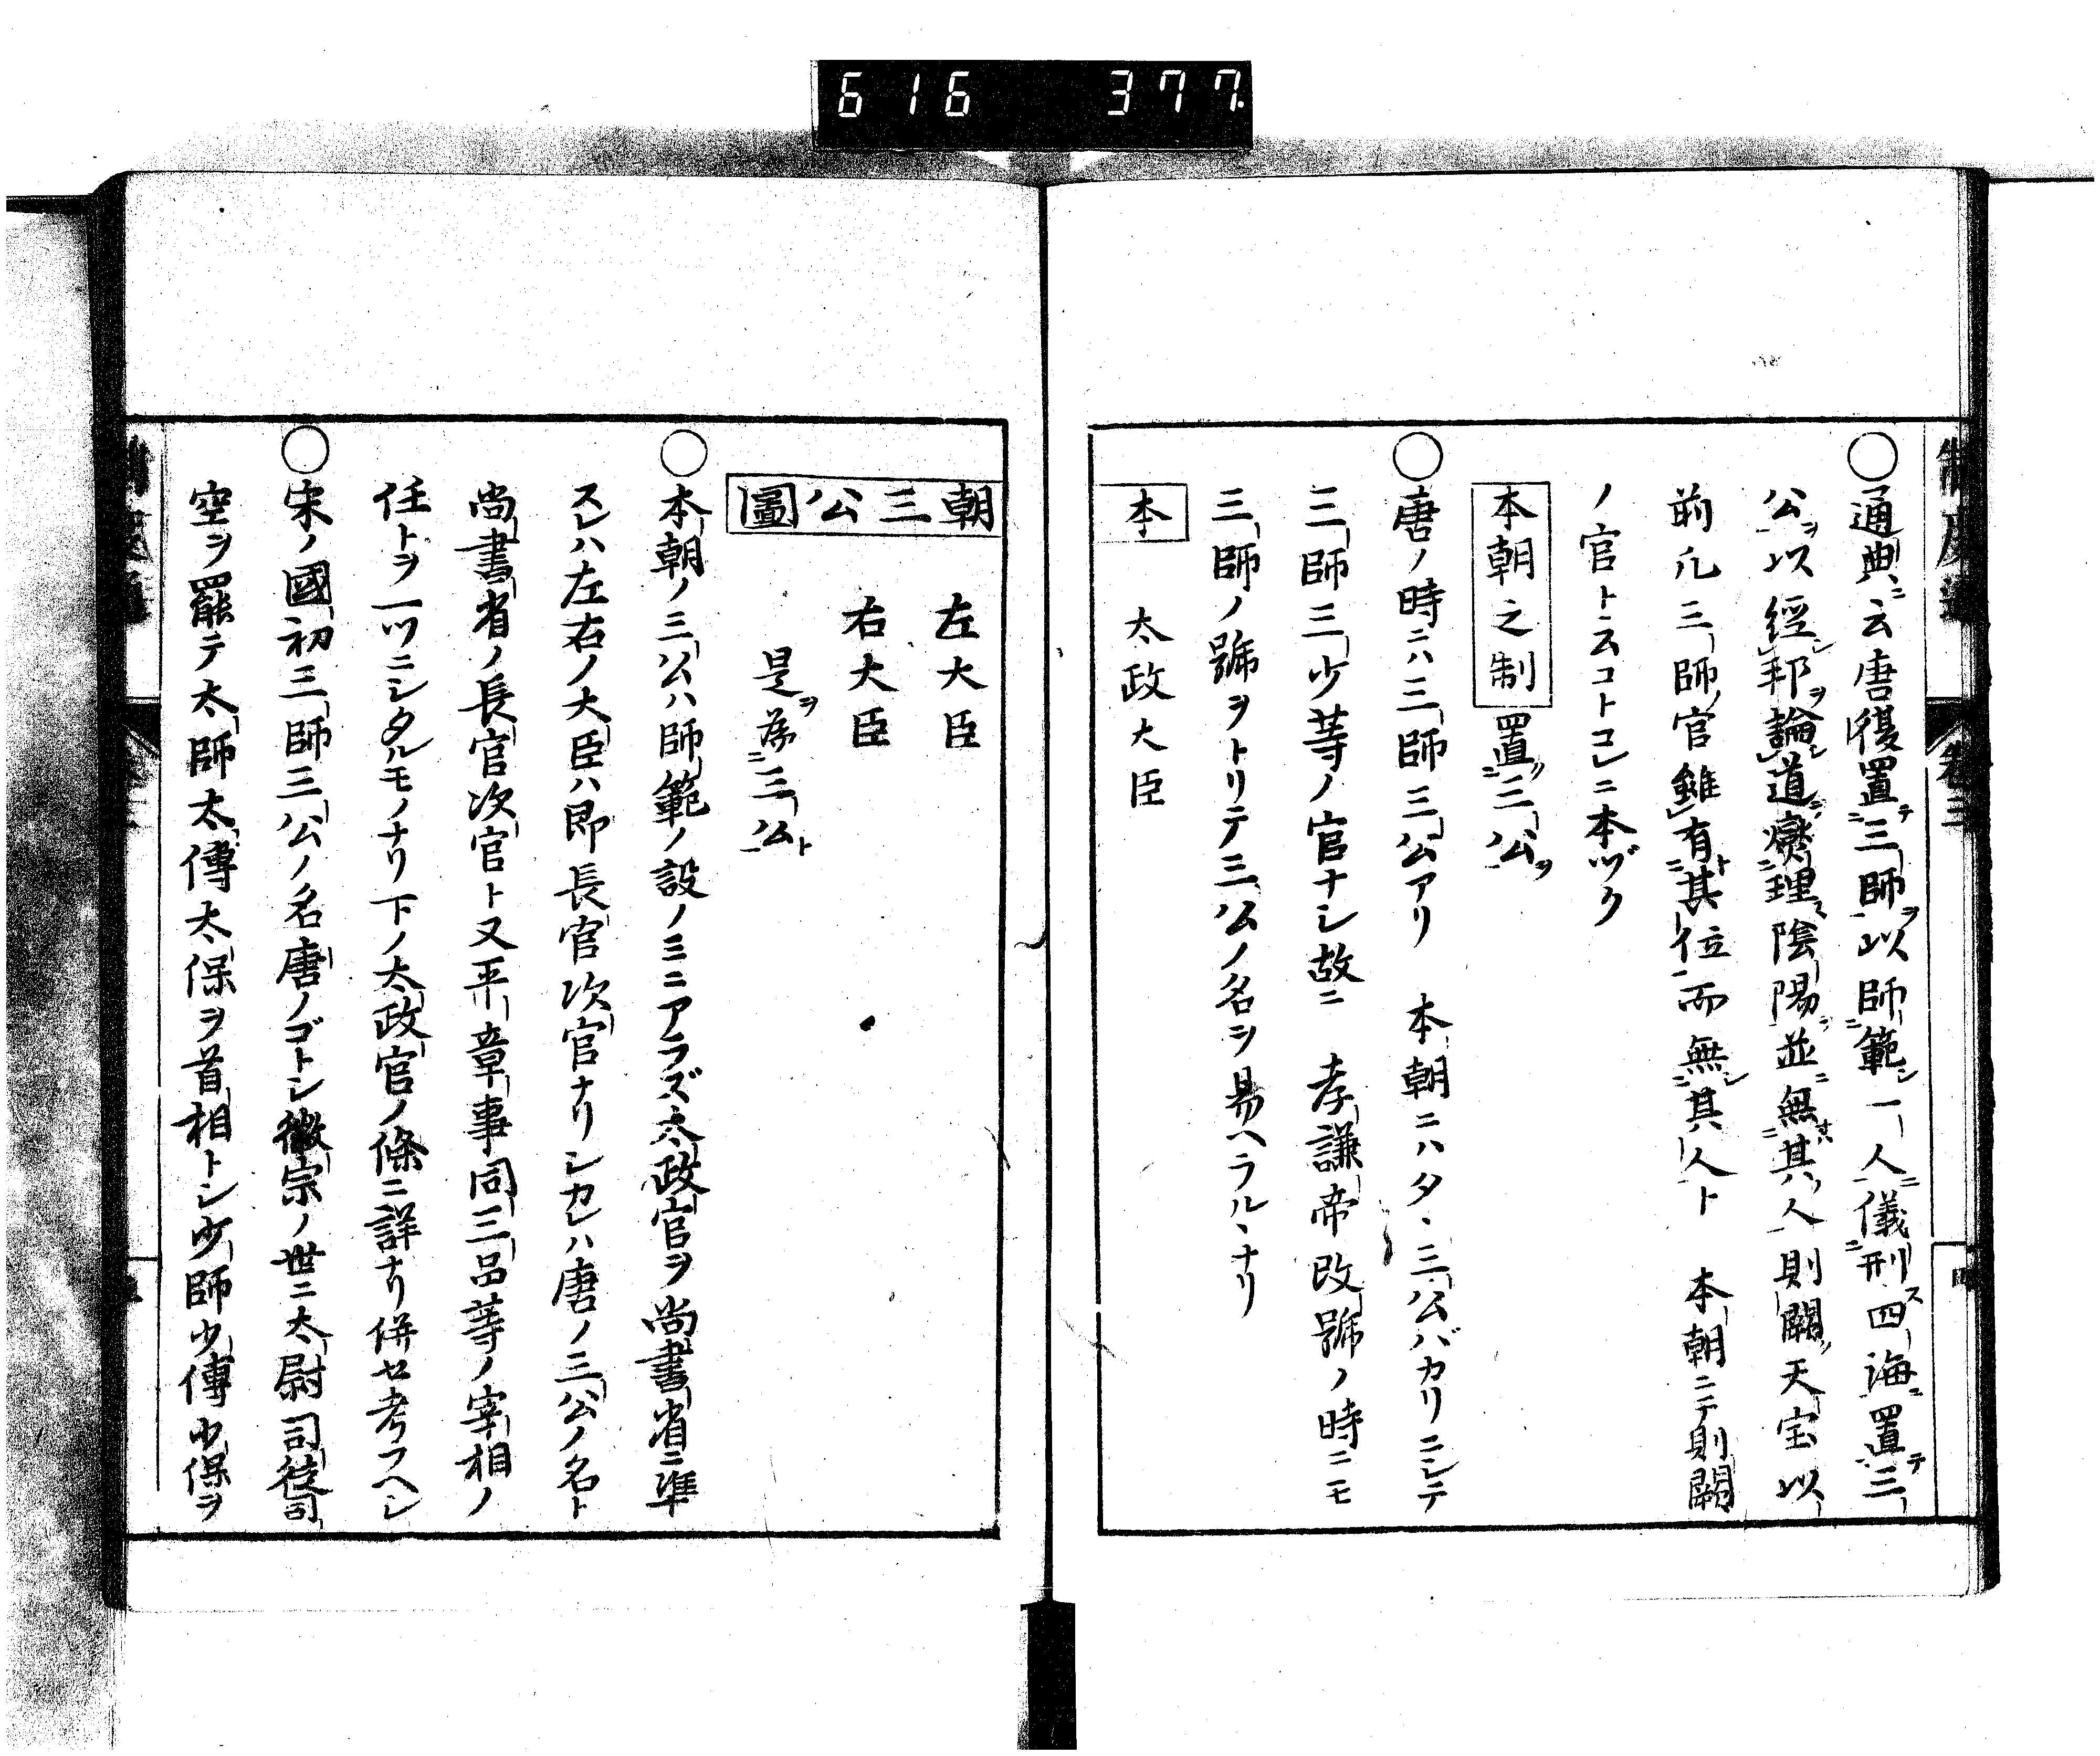 616 377
○通典ニ云唐復置三師ヲ以師範一人ニ儀刑四海ニ置テ三
公ヲ以經邦ヲ論道燮理陰陽並無其人則闕天宝以
前凡三師官雖有其位而無其人ト 本朝ニテ則闕
ノ官ト云コトコレニ本ヅク
本朝之制 置三公ヲ
○唐ノ時ニハ三師三公アリ 本朝ニハタヽ三公バカリニシテ
三師三少等ノ官ナシ故ニ 孝謙帝改號ノ時ニモ
三師ノ號ヲトリテ三公ノ名ヲ易ヘラルヽナリ
本 太政大臣
朝三公圖
左大臣
右大臣
是ヲ為三公ト
○本朝ノ三公ハ師範ノ設ノミニアラズ太政官ヲ尚書省ニ準
スレハ左右ノ大臣ハ即長官次官ナリシカレハ唐ノ三公ノ名ト
尚書省ノ長官次官ト又平章事同三品等ノ宰相ノ
任トヲ一ツニシタルモノナリ下ノ太政官ノ條ニ詳ナリ併セ考フヘシ
○宋ノ國初三師三公ノ名唐ノゴトシ徽宗ノ世ニ太尉司徒司
空ヲ罷テ太師太傅太保ヲ首相トシ少師少傅少保ヲ